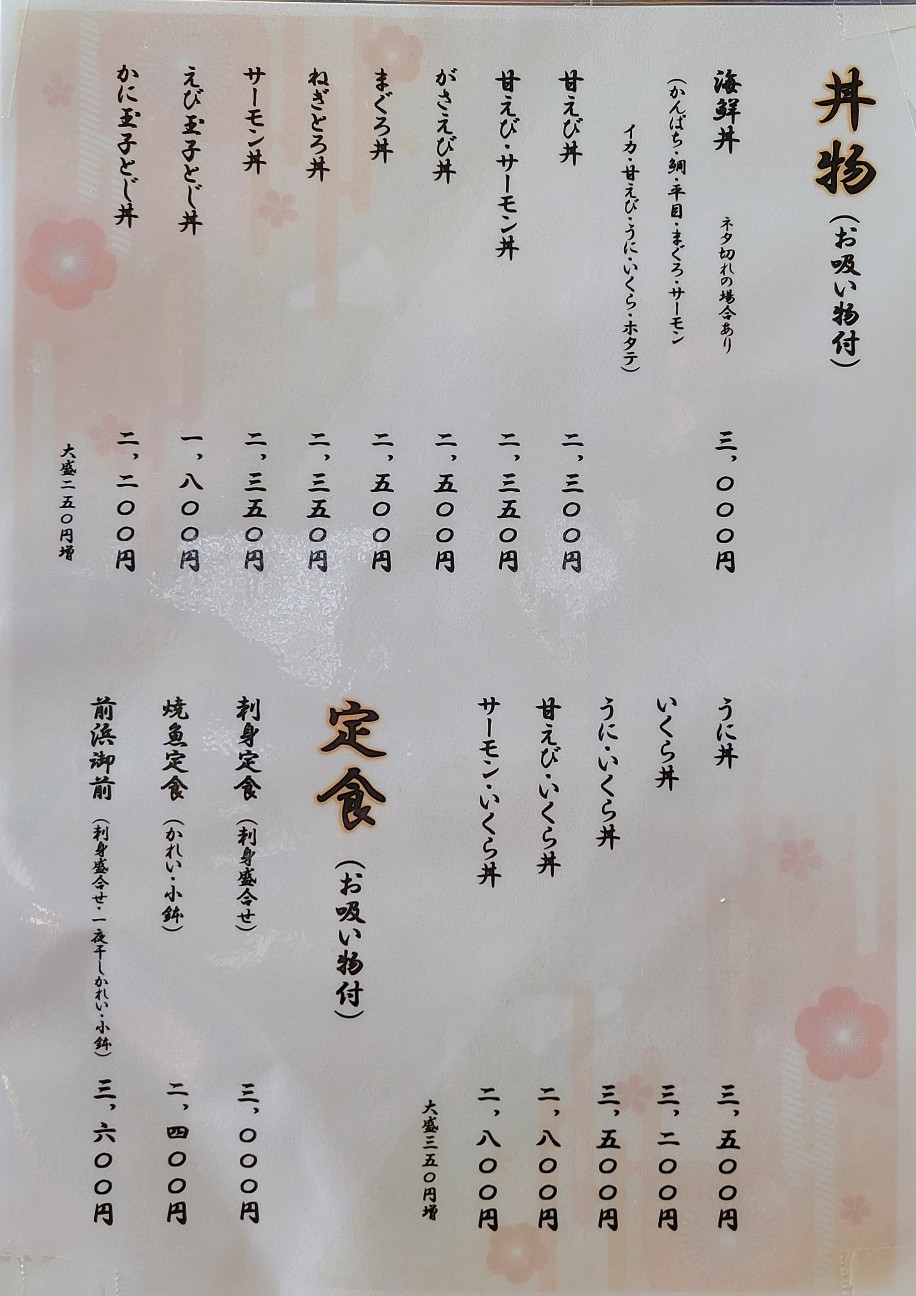 丼物（お吸い物付）
海鮮丼 ネタ切れの場合あり 三,〇〇〇円
（かんぱち・鯛・平目・まぐろ・サーモン
イカ・甘えび・うに・いくら・ホタテ）
甘えび丼 二,三〇〇円
甘えび・サーモン丼 二,三五〇円
がさえび丼 二,五〇〇円
まぐろ丼 二,五〇〇円
ねぎとろ丼 二,三五〇円
サーモン丼 二,三五〇円
えび玉子とじ丼 一,八〇〇円
かに玉子とじ丼 二,二〇〇円
大盛二五〇円増
うに丼 三,五〇〇円
いくら丼 三,二〇〇円
うに・いくら丼 三,五〇〇円
甘えび・いくら丼 二,八〇〇円
サーモン・いくら丼 二,八〇〇円
大盛三五〇円増
定食（お吸い物付）
刺身定食（刺身盛合せ） 三,〇〇〇円
焼魚定食（かれい・小鉢） 二,四〇〇円
前浜御前（刺身盛合せ・一夜干しかれい・小鉢） 三,六〇〇円